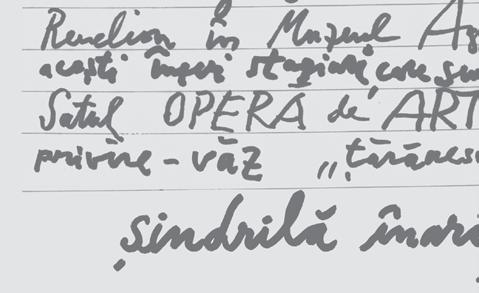 în Muzeul
acești îngeri stagiari care
Satul OPERA de ART
privire - văz „țărănes
șindrilă înari